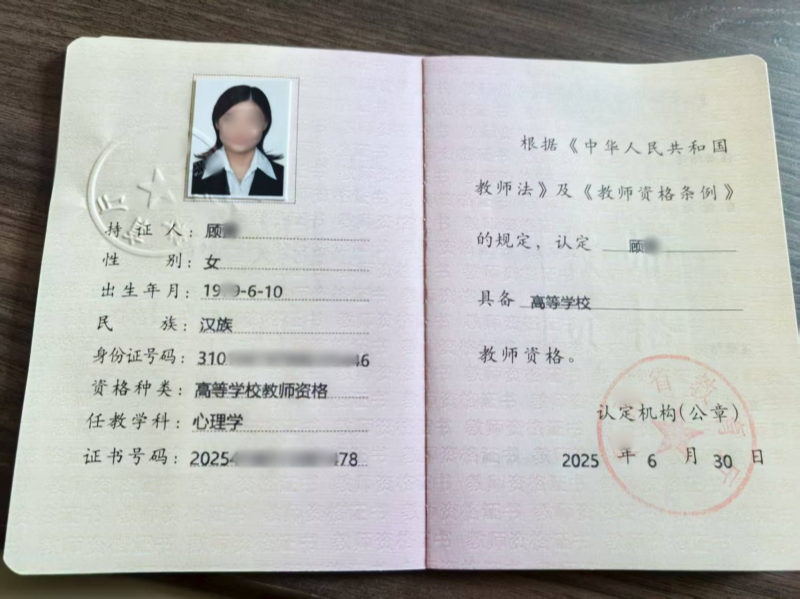 持证人：顾
性别：女
出生年月：19 9-6-10
民族：汉族
身份证号码：310 46
资格种类：高等学校教师资格
任教学科：心理学
证书号码：2025 478
根据《中华人民共和国
教师法》及《教师资格条例》
的规定，认定 顾
具备 高等学校
教师资格。
省教
认定机构(公章)
2025 年 6 月 30 日